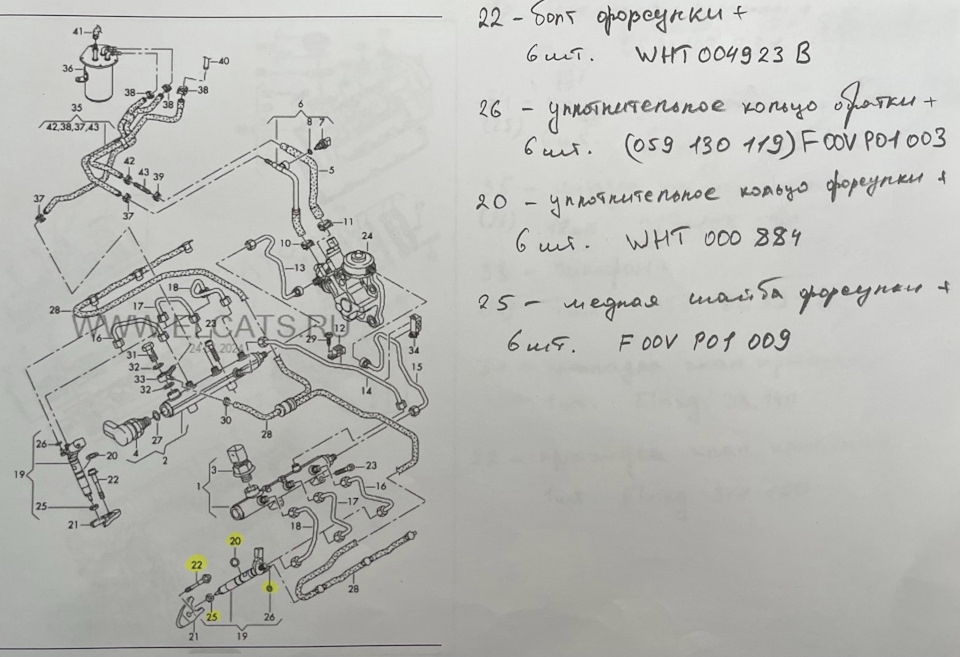 41
36
40
38
38
38
35
42,38,37,43
6
8
7
42
43
39
5
37
37
11
10
24
13
18
28
17
23
16
WWW.ELCATS.RU
24
12
29
34
31
32
33
32
14
15
30
27
28
4
2
26
19
20
22
25
21
3
1
23
16
17
18
20
22
25
26
28
21
19
22 - болт форсунки +
6 шт. WHT 004923 B
26 - уплотнительное кольцо обратки +
6 шт. (059 130 119) F00V P01 003
20 - уплотнительное кольцо форсунки +
6 шт. WHT 000 884
25 - медная шайба форсунки +
6 шт. F 00V P01 009